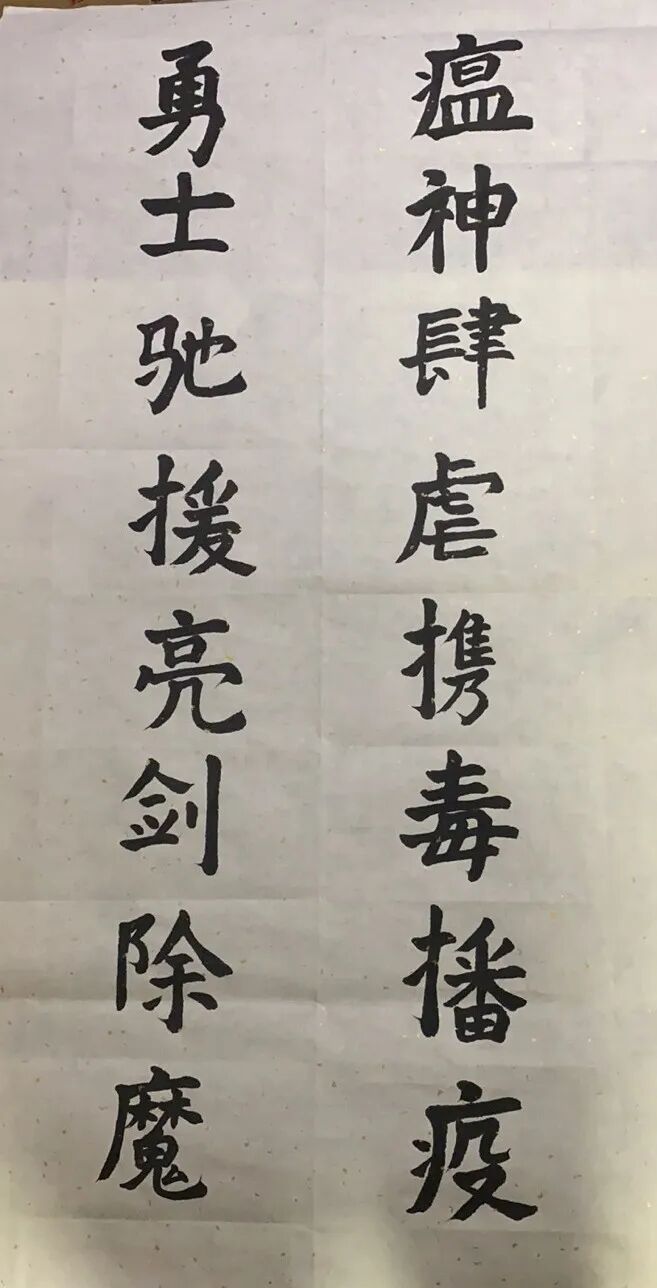 瘟神肆虐携毒播疫
勇士驰援亮剑除魔